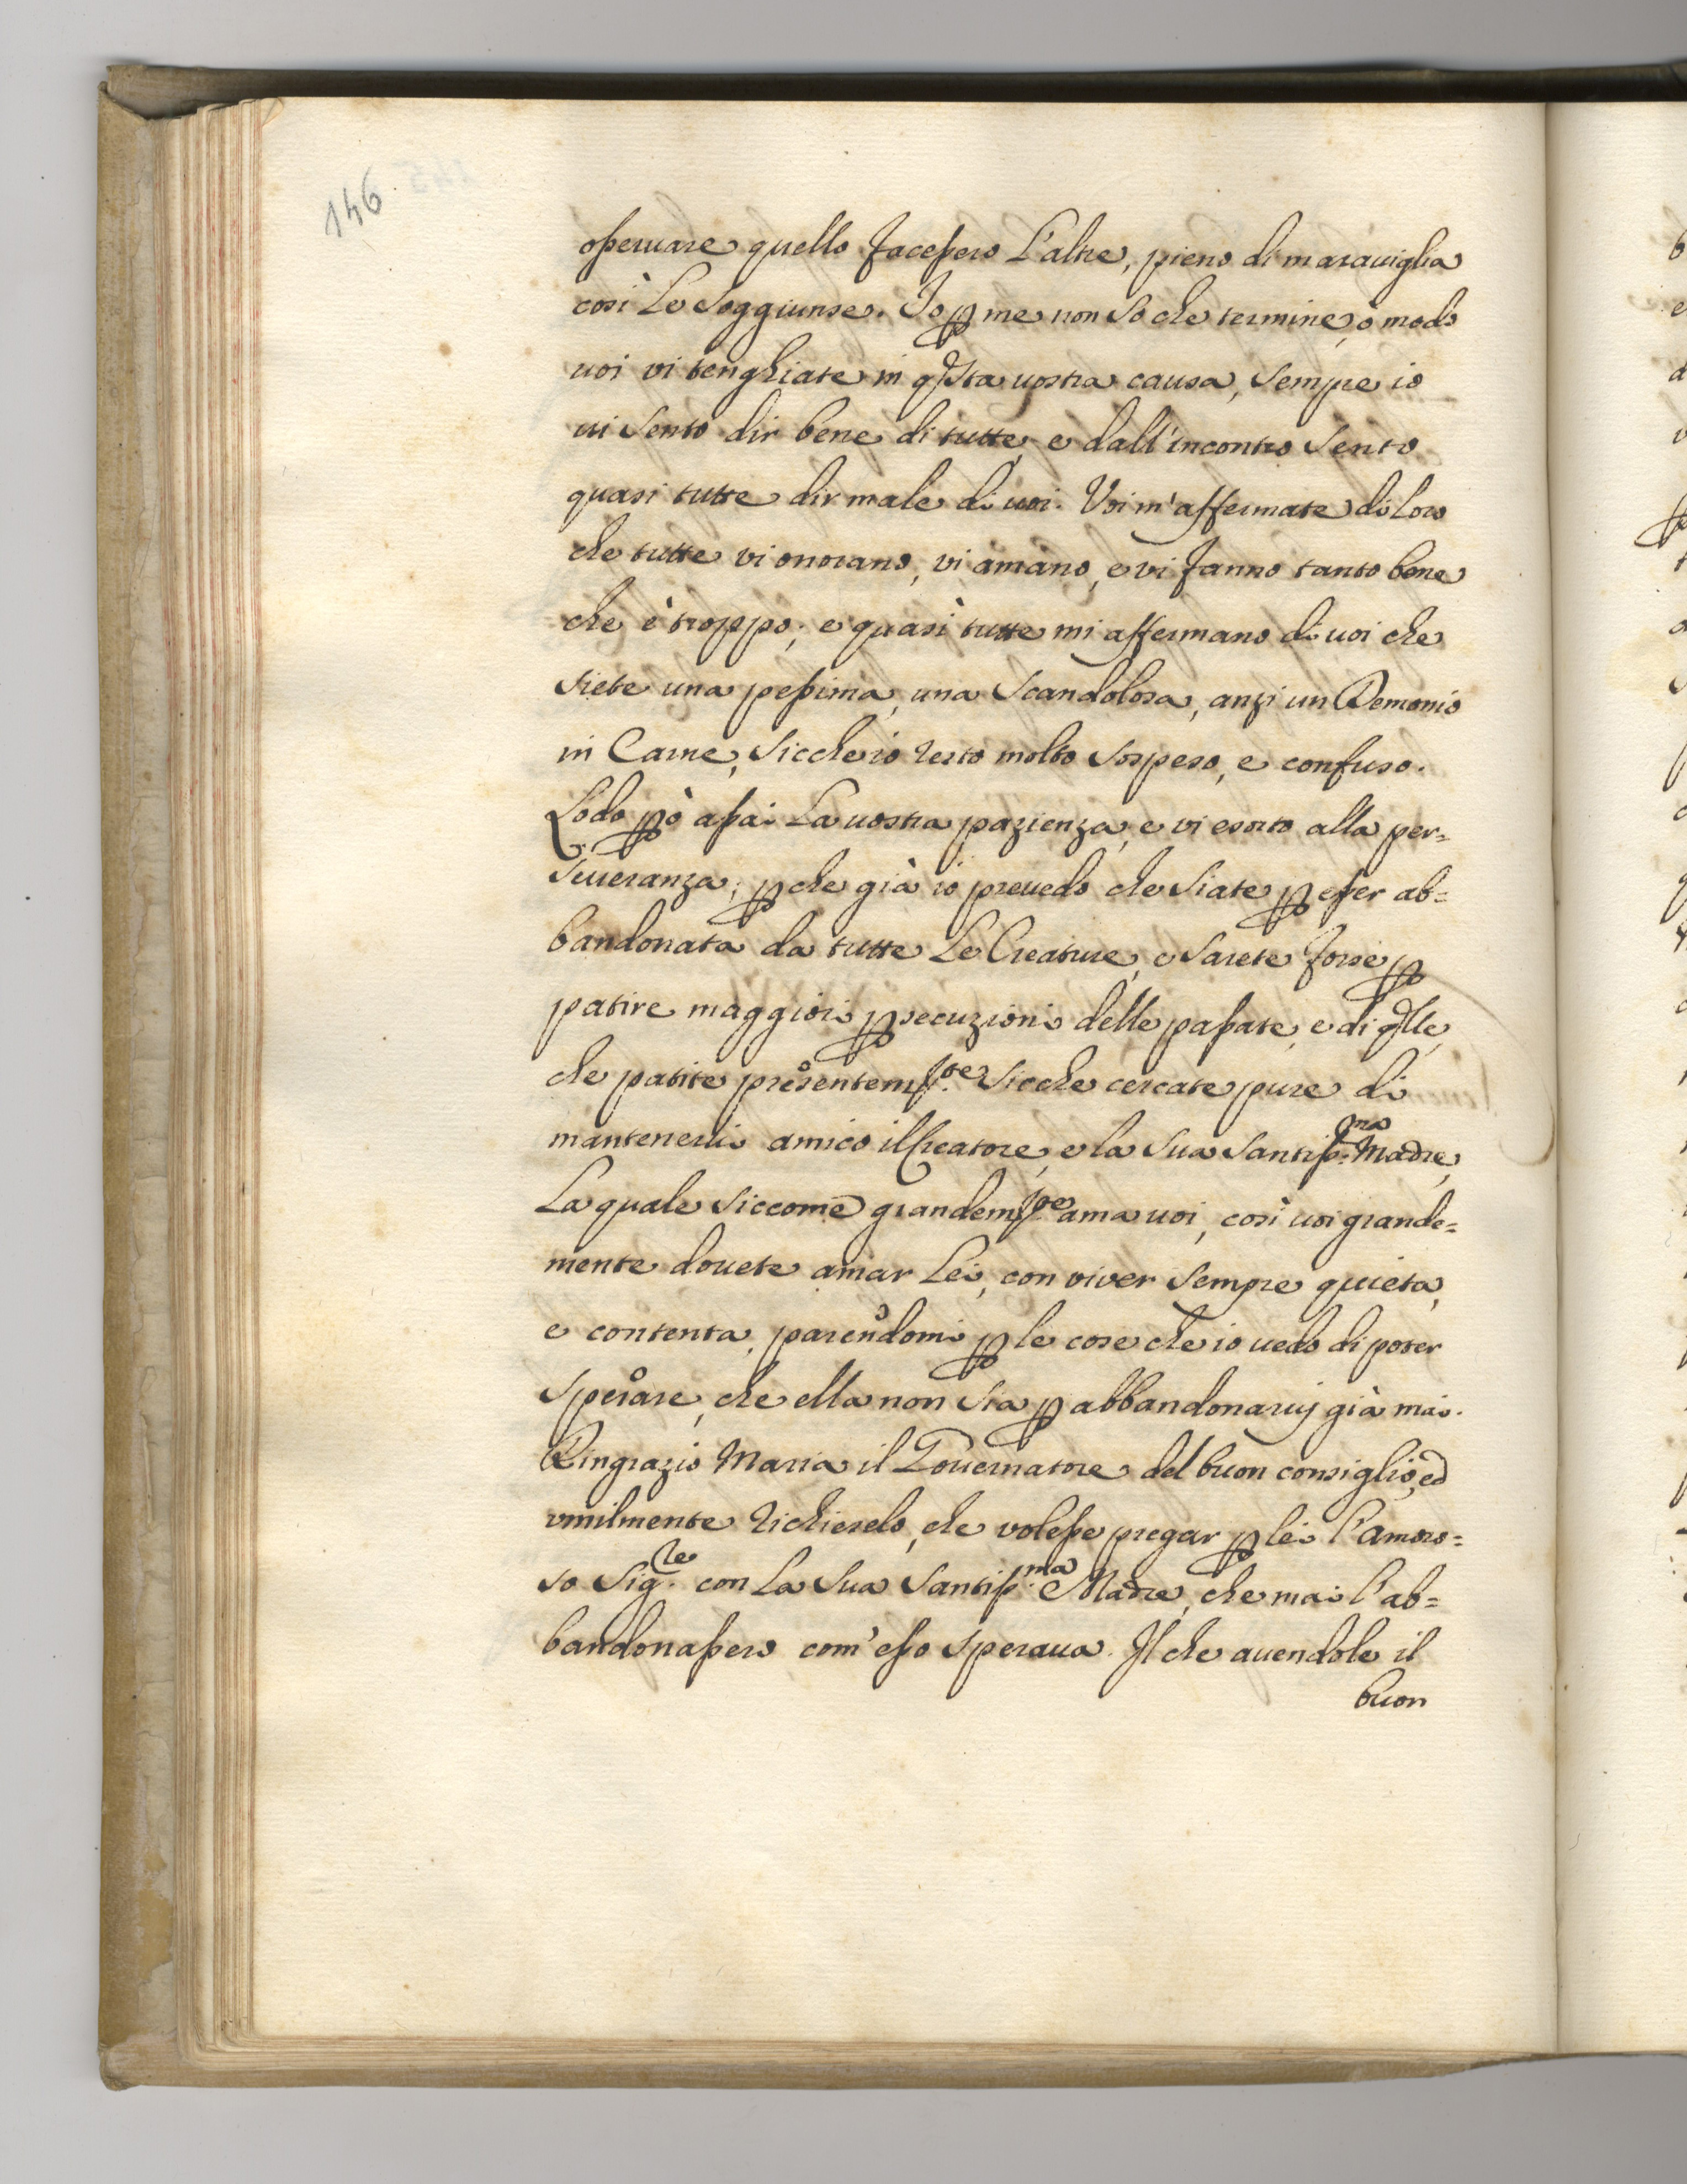 146
osseruare quello facessero L'altre, pieno di marauiglia
così Le Soggiunse. Io ꝑ me non So che termine, ò modo
uoi vi tenghiate in qsta uostra causa, Sempre io
ui Sento dir bene di tutte, e dall'incontro Sento
quasi tutte dir male di uoi. Voi m'affermate di Loro
che tutte vi onorano, vi amano, e vi fanno tanto bene
che è troppo; e quasi tutte mi affermano di uoi che
Siete una pessima, una Scandolosa, anzi un Demonio
in Carne, Sicche io resto molto Sospeso, e confuso.
Lodo ꝑò assai La uostra pazienza, e vi esorto alla per=
Seueranza; ꝑche già io preuedo che Siate ꝑ esser ab=
bandonata da tutte Le Creature, e Sarete forse ꝑ
patire maggiori ꝑsecuzioni delle passate, e di qlle,
che patite presentemte. Sicche cercate pure di
mantenerui amico il Creatore, e la Sua Santissma. Madre,
La quale Siccome grandemte ama uoi, così uoi grande=
mente douete amar Lei, con viver Sempre quieta,
e contenta, parendomi ꝑ le cose che io uedo di poter
Sperare, che ella non Sia ꝑ abbandonaruj già mai.
Ringrazio Maria il Gouernatore del buon consiglio, ed
vmilmente richieselo, che volesse pregar ꝑ lei l'amoro=
so Sigre. con La Sua Santissma. Madre, che mai l'ab=
bandonassero com'esso Speraua. Il che auendole il
buon